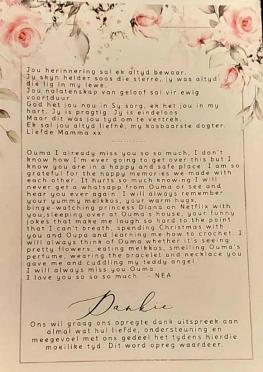 Jou herinnering sal ek altyd bewaar.
Jy skyn helder soos die sterre, jy was altyd
die lig in my lewe.
Jou nalatenskap van geloof sal vir ewig
voortduur.
God het jou nou in Sy sorg, ek het jou in my
hart. Jy is pragtig. Jy is eindeloos.
Maar dit was jou tyd om te vertrek.
Ek sal jou altyd liefhê, my kosbaarste dogter.
Liefde Mamma xx
Ouma I already miss you so so much, I don't
know how I'm ever going to get over this but I
know you are in a happy and safe place. I am so
grateful for the happy memories we made with
each other. It hurts so much knowing I will
never get a whatsapp from Ouma or see and
hear you ever again. I will always remember
your yummy melkkos, your warm hugs,
binge-watching princess Diana on Netflix with
you, sleeping over at Ouma's house, your funny
jokes that make me laugh so hard to the point
that I can't breath, spending Christmas with
you and Oupa and learning me how to crochet. I
will always think of Ouma whether it's seeing
pretty flowers, eating melkkos, smelling Ouma's
perfume, wearing the bracelet and necklace you
gave me and cuddling my teddy angel.
I will always miss you Ouma
I love you so so so much - NEA
Dankie
Ons wil graag ons opregte dank uitspreek aan
almal wat hul liefde, ondersteuning en
meegevoel met ons gedeel het tydens hierdie
moeilike tyd. Dit word opreg waardeer.